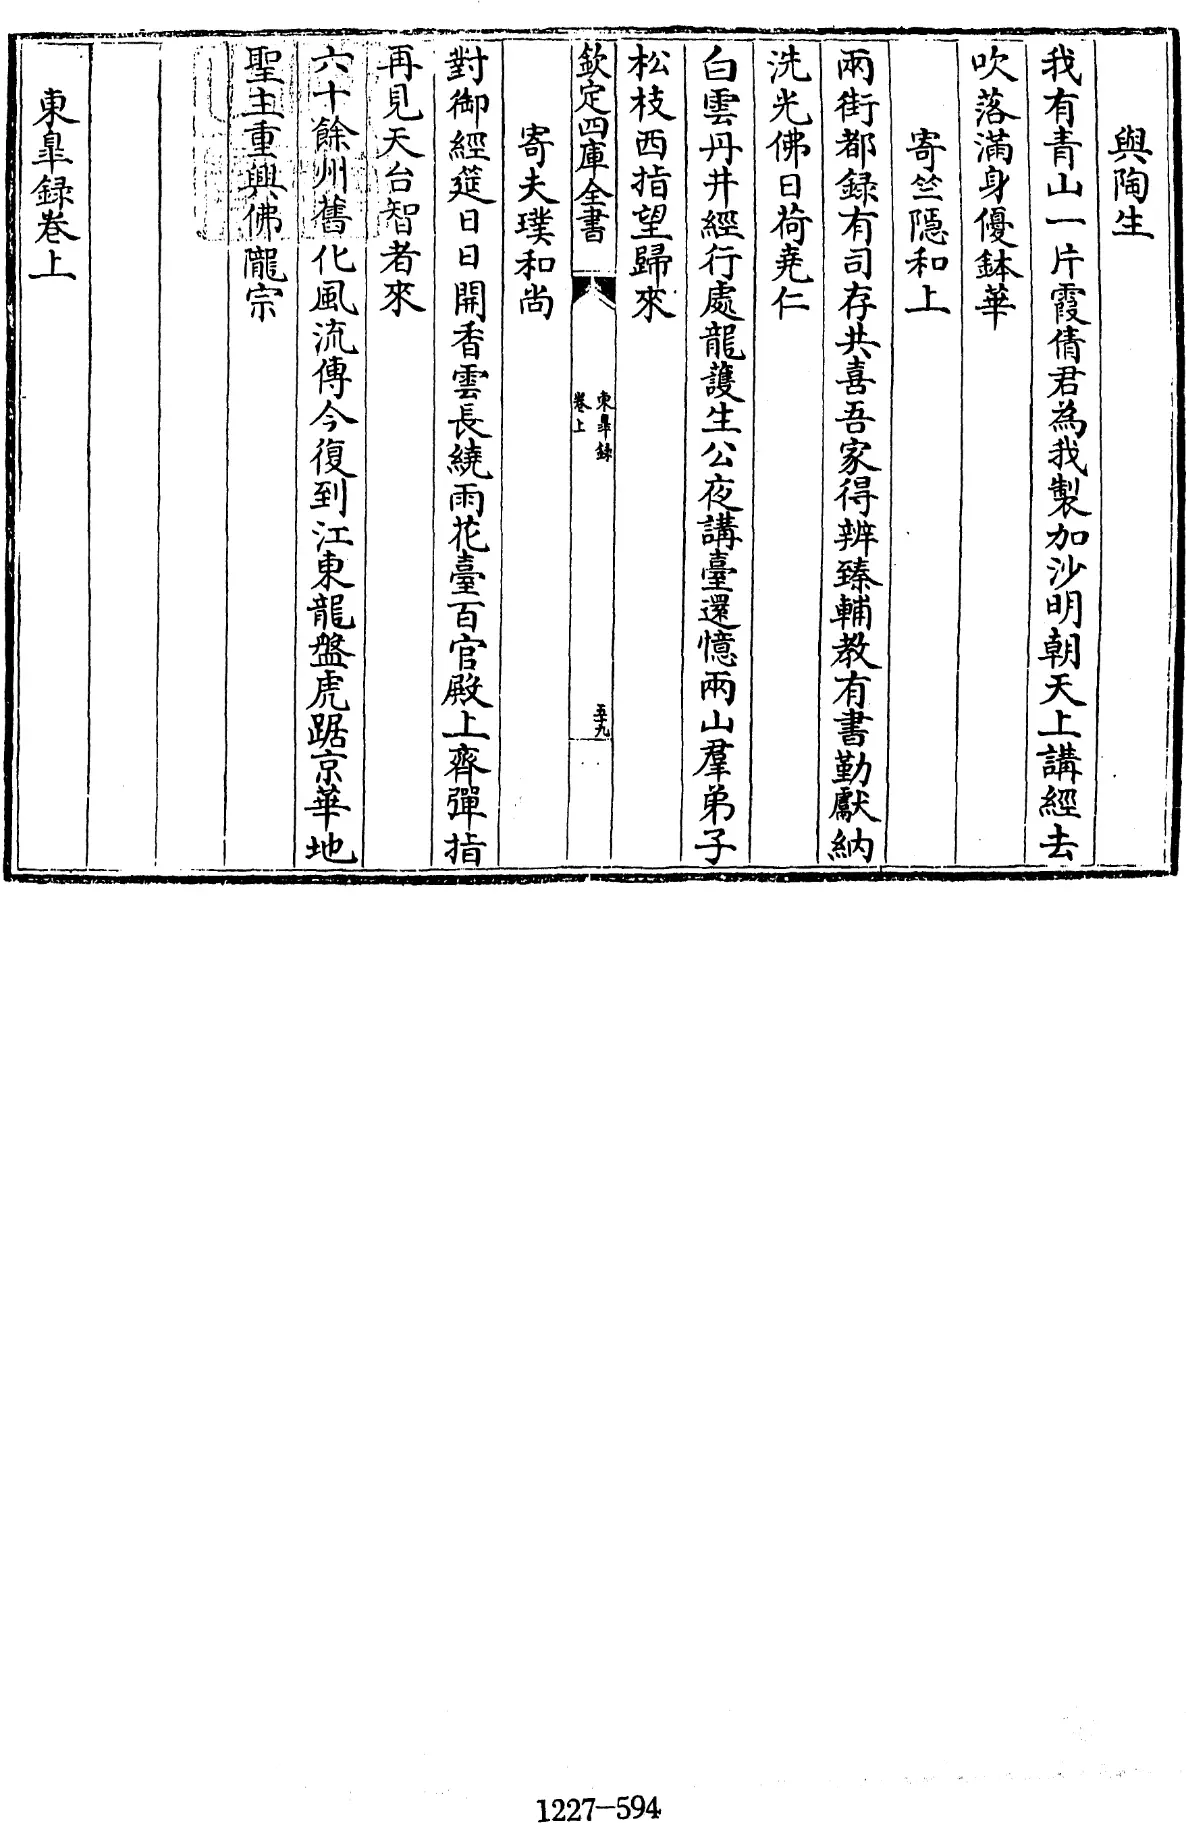 與陶生
我有青山一片霞倩君為我製加沙明朝天上講經去
吹落滿身優鉢華
寄竺隱和上
兩街都録有司存共喜吾家得辨臻輔教有書勤獻納
洗光佛日荷堯仁
白雲丹井經行處龍護生公夜講臺還憶兩山羣弟子
松枝西指望歸來
欽定四庫全書
東臯録
卷上
五十九
寄夫璞和尚
對御經筵日日開香雲長繞雨花臺百官殿上齊彈指
再見天台智者來
六十餘州舊化風流傳今復到江東龍盤虎踞京華地
聖主重興佛隴宗
東臯録卷上
1227-594